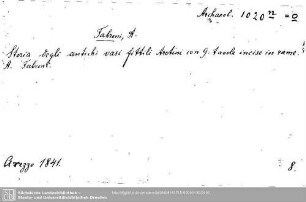 Archaeol. 1020 m = o
Fabroni, A.
Storia degli antichi vasi fittili Aretini con 9 tavole incise in rame.
A. Fabroni.
Arezzo 1841.
8.
Sächsische Landesbibliothek –
Staats- und Universitätsbibliothek Dresden